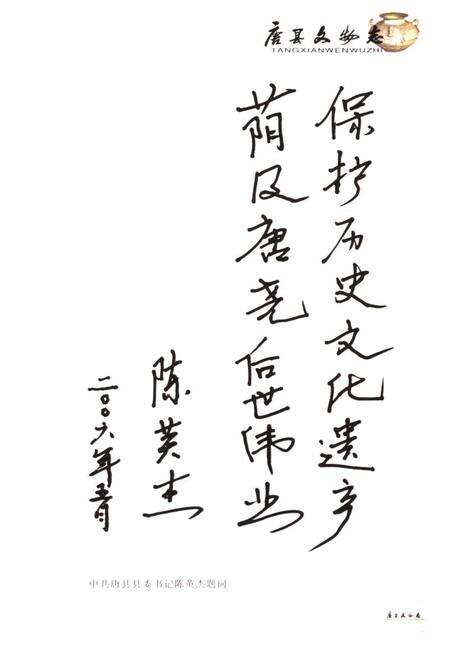 唐县文物志
TANGXIANWENWUZHI
保护历史文化遗产
荫及唐尧后世伟业
陈英杰
二〇〇六年五月
中共唐县县委书记陈英杰题词
唐县文物志